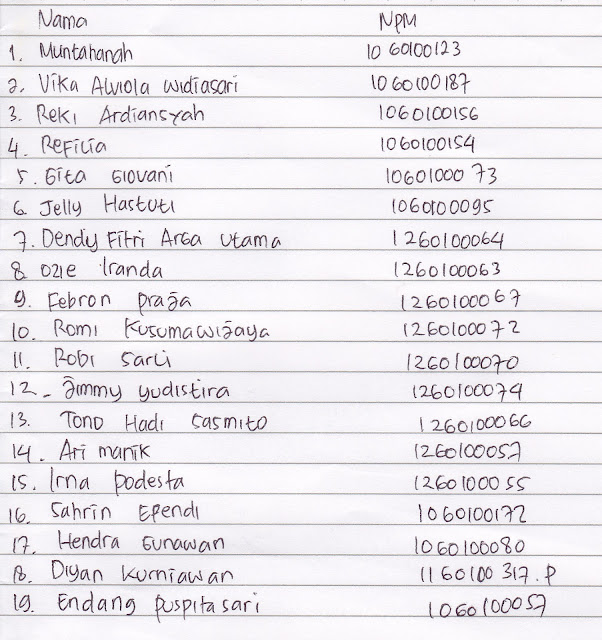 Nama NPM
1. Muntahanah 1060100123
2. Vika Alviola Widiasari 1060100187
3. Reki Ardiansyah 1060100156
4. Refilia 1060100154
5. Gita Giovani 1060100073
6. Jelly Hastuti 1060100095
7. Dendy Fitri Arga Utama 1260100064
8. Ozie Iranda 1260100063
9. Febron Praja 1260100067
10. Romi Kusumawijaya 1260100072
11. Robi Sarli 1260100070
12. Jimmy Yudistira 1260100074
13. Tono Hadi Sasmito 1260100066
14. Ari Manik 1260100057
15. Irna Podesta 1260100055
16. Sahrin Ependi 1060100172
17. Hendra Gunawan 1060100080
18. Diyan Kurniawan 1160100317.P
19. Endang Puspitasari 1060100057